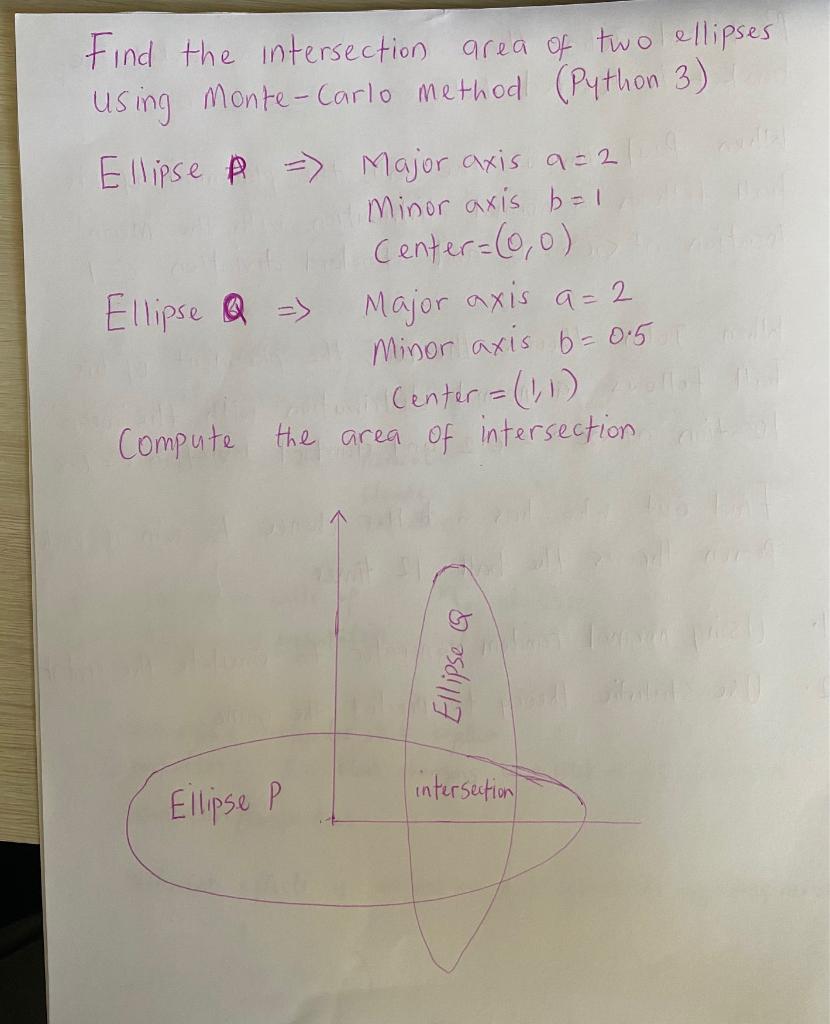 Find the intersection area of two ellipses
using Monte-Carlo method (Python 3)
Ellipse P => Major axis a = 2
Minor axis b = 1
Center = (0,0)
Ellipse Q => Major axis a = 2
Minor axis b = 0.5
Center = (1,1)
Compute the area of intersection
Ellipse Q
Ellipse P
intersection